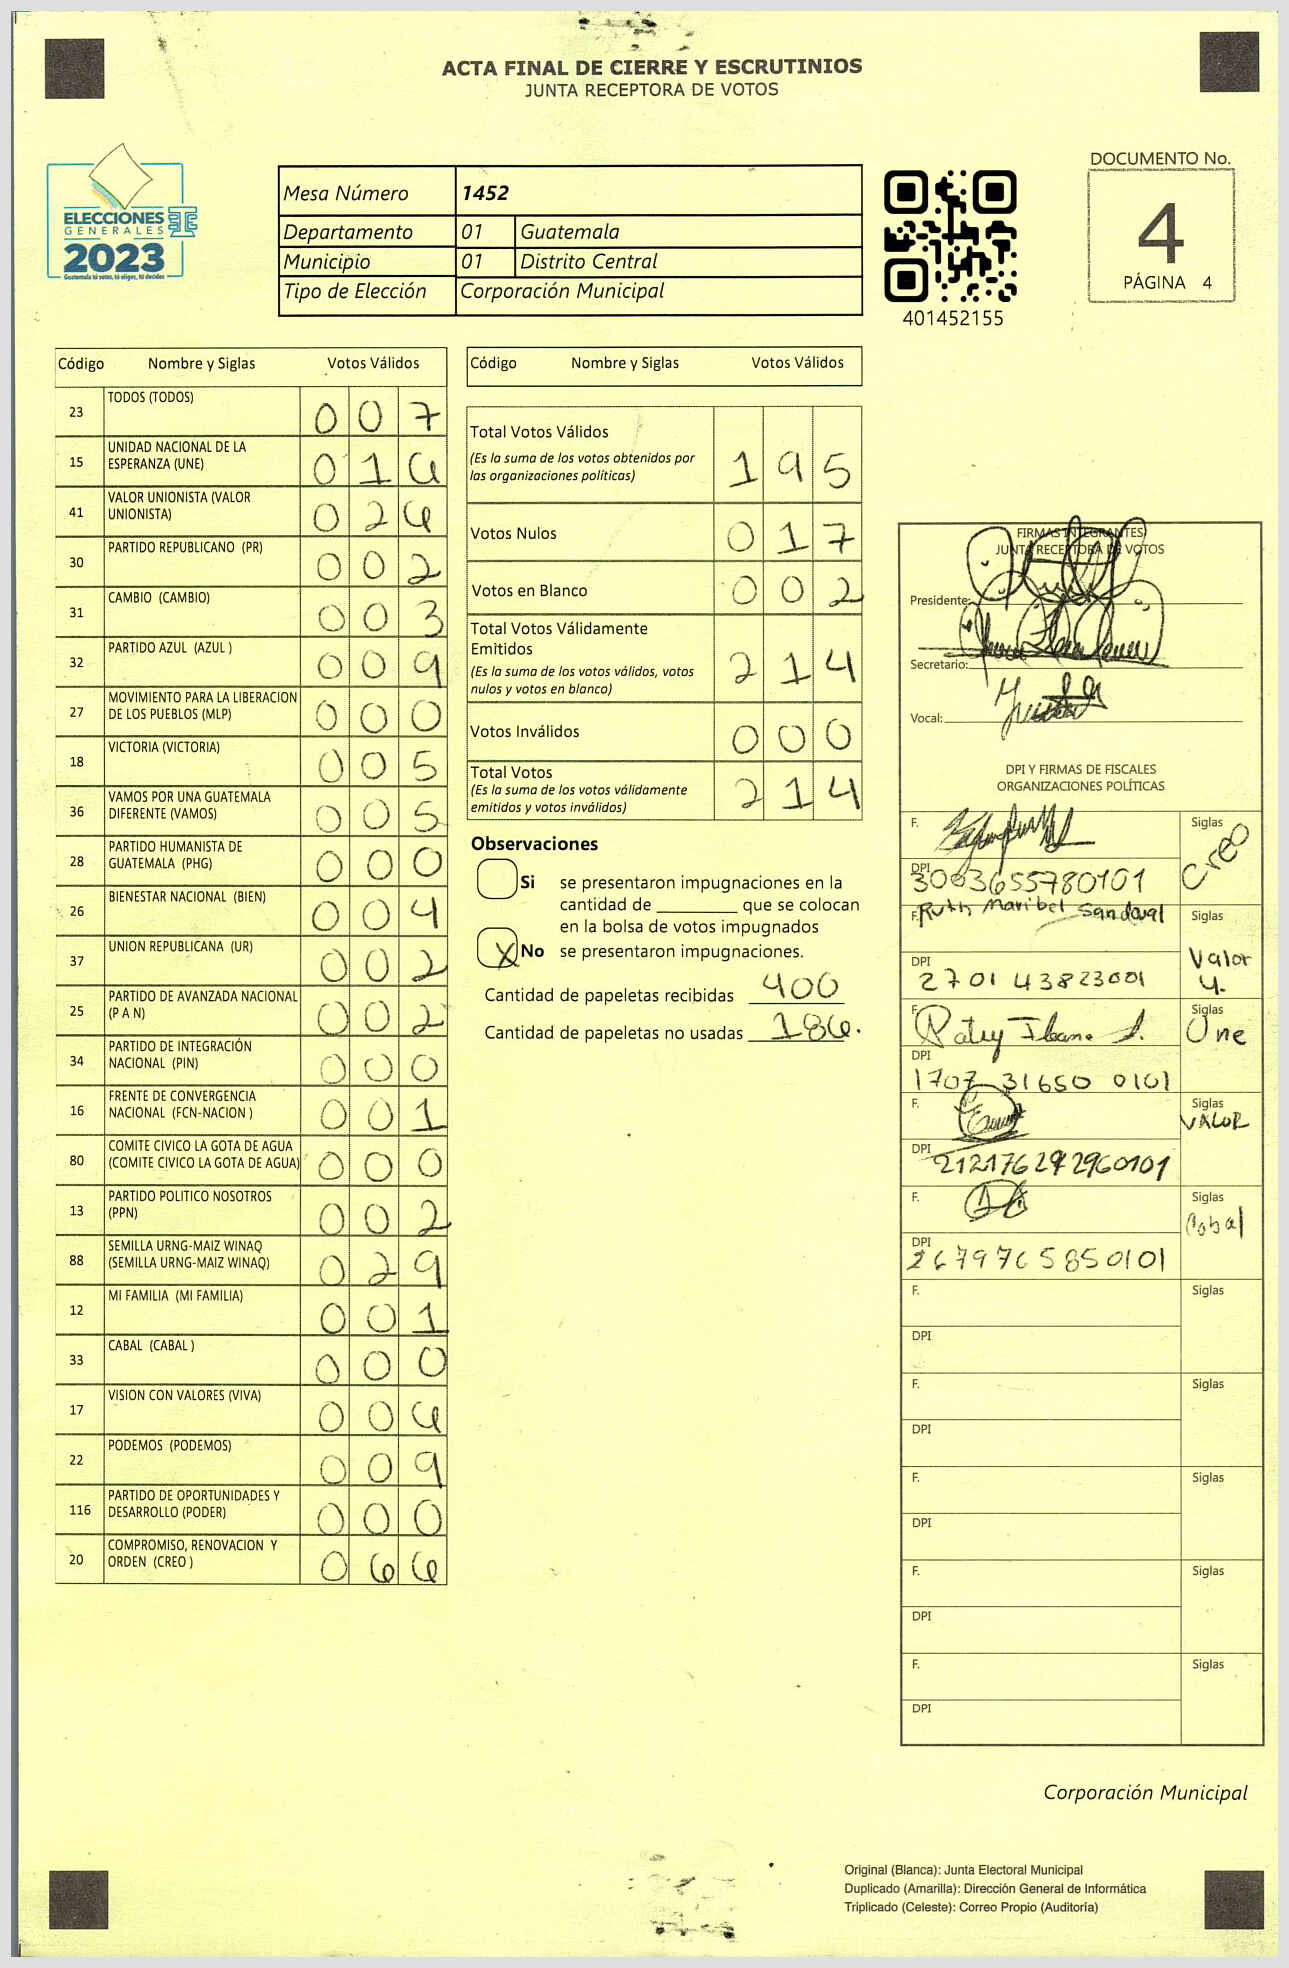 ACTA FINAL DE CIERRE Y ESCRUTINIOS
JUNTA RECEPTORA DE VOTOS
ELECCIONES
GENERALES
2023
Guatemala tú votas, tú eliges, tú decides
Mesa Número 1452
Departamento 01 Guatemala
Municipio 01 Distrito Central
Tipo de Elección Corporación Municipal
401452155
DOCUMENTO No.
4
PÁGINA 4
Código Nombre y Siglas Votos Válidos
23 TODOS (TODOS) 0 0 7
15 UNIDAD NACIONAL DE LA ESPERANZA (UNE) 0 1 6
41 VALOR UNIONISTA (VALOR UNIONISTA) 0 2 6
30 PARTIDO REPUBLICANO (PR) 0 0 2
31 CAMBIO (CAMBIO) 0 0 3
32 PARTIDO AZUL (AZUL ) 0 0 9
27 MOVIMIENTO PARA LA LIBERACION DE LOS PUEBLOS (MLP) 0 0 0
18 VICTORIA (VICTORIA) 0 0 5
36 VAMOS POR UNA GUATEMALA DIFERENTE (VAMOS) 0 0 5
28 PARTIDO HUMANISTA DE GUATEMALA (PHG) 0 0 0
26 BIENESTAR NACIONAL (BIEN) 0 0 4
37 UNION REPUBLICANA (UR) 0 0 2
25 PARTIDO DE AVANZADA NACIONAL (P A N) 0 0 2
34 PARTIDO DE INTEGRACIÓN NACIONAL (PIN) 0 0 0
16 FRENTE DE CONVERGENCIA NACIONAL (FCN-NACION ) 0 0 1
80 COMITE CIVICO LA GOTA DE AGUA (COMITE CIVICO LA GOTA DE AGUA) 0 0 0
13 PARTIDO POLITICO NOSOTROS (PPN) 0 0 2
88 SEMILLA URNG-MAIZ WINAQ (SEMILLA URNG-MAIZ WINAQ) 0 2 9
12 MI FAMILIA (MI FAMILIA) 0 0 1
33 CABAL (CABAL ) 0 0 0
17 VISION CON VALORES (VIVA) 0 0 6
22 PODEMOS (PODEMOS) 0 0 9
116 PARTIDO DE OPORTUNIDADES Y DESARROLLO (PODER) 0 0 0
20 COMPROMISO, RENOVACION Y ORDEN (CREO ) 0 6 6
Código Nombre y Siglas Votos Válidos
Total Votos Válidos 1 9 5
(Es la suma de los votos obtenidos por
las organizaciones políticas)
Votos Nulos 0 1 7
Votos en Blanco 0 0 2
Total Votos Válidamente
Emitidos 2 1 4
(Es la suma de los votos válidos, votos
nulos y votos en blanco)
Votos Inválidos 0 0 0
Total Votos 2 1 4
(Es la suma de los votos válidamente
emitidos y votos inválidos)
Observaciones
Si se presentaron impugnaciones en la
cantidad de ________ que se colocan
en la bolsa de votos impugnados
X No se presentaron impugnaciones.
Cantidad de papeletas recibidas 400
Cantidad de papeletas no usadas 186.
FIRMAS INTEGRANTES
JUNTA RECEPTORA DE VOTOS
Presidente:
Secretario:
Vocal:
DPI Y FIRMAS DE FISCALES
ORGANIZACIONES POLÍTICAS
F. Siglas Creo
DPI 3003655780101
F. Ruth Maribel Sandoval Siglas Valor
DPI 2701 43823001 U.
F. Siglas Une
DPI 1707 31650 0101
F. Siglas VALOR
DPI
F. Siglas Cabal
DPI 2679765850101
F. Siglas
DPI
F. Siglas
DPI
F. Siglas
DPI
F. Siglas
DPI
F. Siglas
DPI
Corporación Municipal
Original (Blanca): Junta Electoral Municipal
Duplicado (Amarilla): Dirección General de Informática
Triplicado (Celeste): Correo Propio (Auditoría)